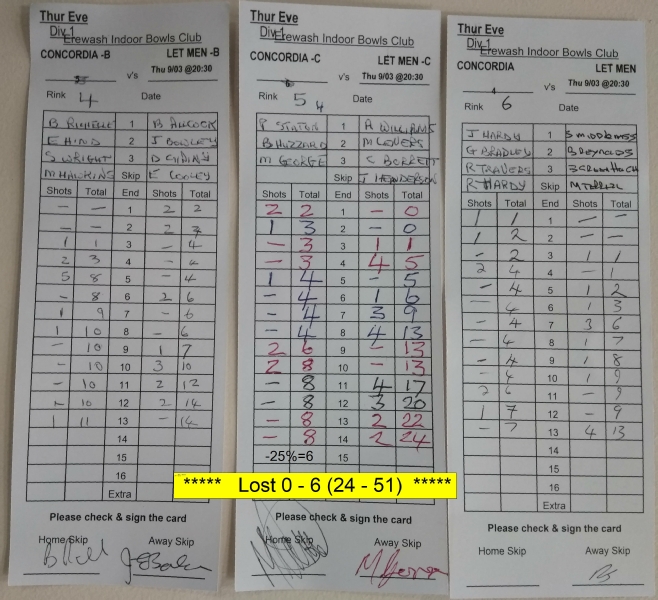 Thur Eve
Div 1
Erewash Indoor Bowls Club
CONCORDIA -B LET MEN -B
v's Thu 9/03 @20:30
Rink 4 Date
1
E HIND 2 J BOWLEY
S WRIGHT 3
M HAWKINS Skip E COOLEY
Shots Total End Shots Total
- - 1 2 2
- - 2 2
1 1 3 - 4
2 3 4 -
5 8 5 - 4
- 8 6 2 6
1 9 7 - 6
1 10 8 - 6
- 10 9 1 7
- 10 10 3 10
- 10 11 2 12
- 10 12 2 14
1 11 13 - 14
14
15
16
Extra
Please check & sign the card
Home Skip Away Skip
Thur Eve
Div 1
Erewash Indoor Bowls Club
CONCORDIA -C LET MEN -C
v's Thu 9/03 @20:30
Rink 5 4 Date
P STATON 1 A WILLIAMS
B HUZZARD 2
M GEORGE 3 C BERRETT
Skip J HENDERSON
Shots Total End Shots Total
2 2 1 - 0
1 3 2 - 0
- 3 3 1 1
- 3 4 4 5
1 4 5 - 5
- 4 6 1 6
- 4 7 3 9
- 4 8 4 13
2 6 9 - 13
2 8 10 - 13
- 8 11 4 17
- 8 12 3 20
- 8 13 2 22
- 8 14 2 24
-25%=6 15
***** Lost 0 - 6 (24 - 51) *****
Please check & sign the card
Home Skip Away Skip
Thur Eve
Div 1
Erewash Indoor Bowls Club
CONCORDIA LET MEN
4 v's Thu 9/03 @20:30
Rink 6 Date
J HARDY 1
G BRADLEY 2 B REYNOLDS
R TRAVERS 3
R HARDY Skip
Shots Total End Shots Total
1 1 1 - -
1 2 2 - -
- 2 3 1 1
2 4 4 - 1
- 4 5 1 2
- 4 6 1 3
- 4 7 3 6
- 4 8 1 7
- 4 9 1 8
- 4 10 1 9
2 6 11 - 9
1 7 12 - 9
- 7 13 4 13
14
15
16
Extra
Please check & sign the card
Home Skip Away Skip